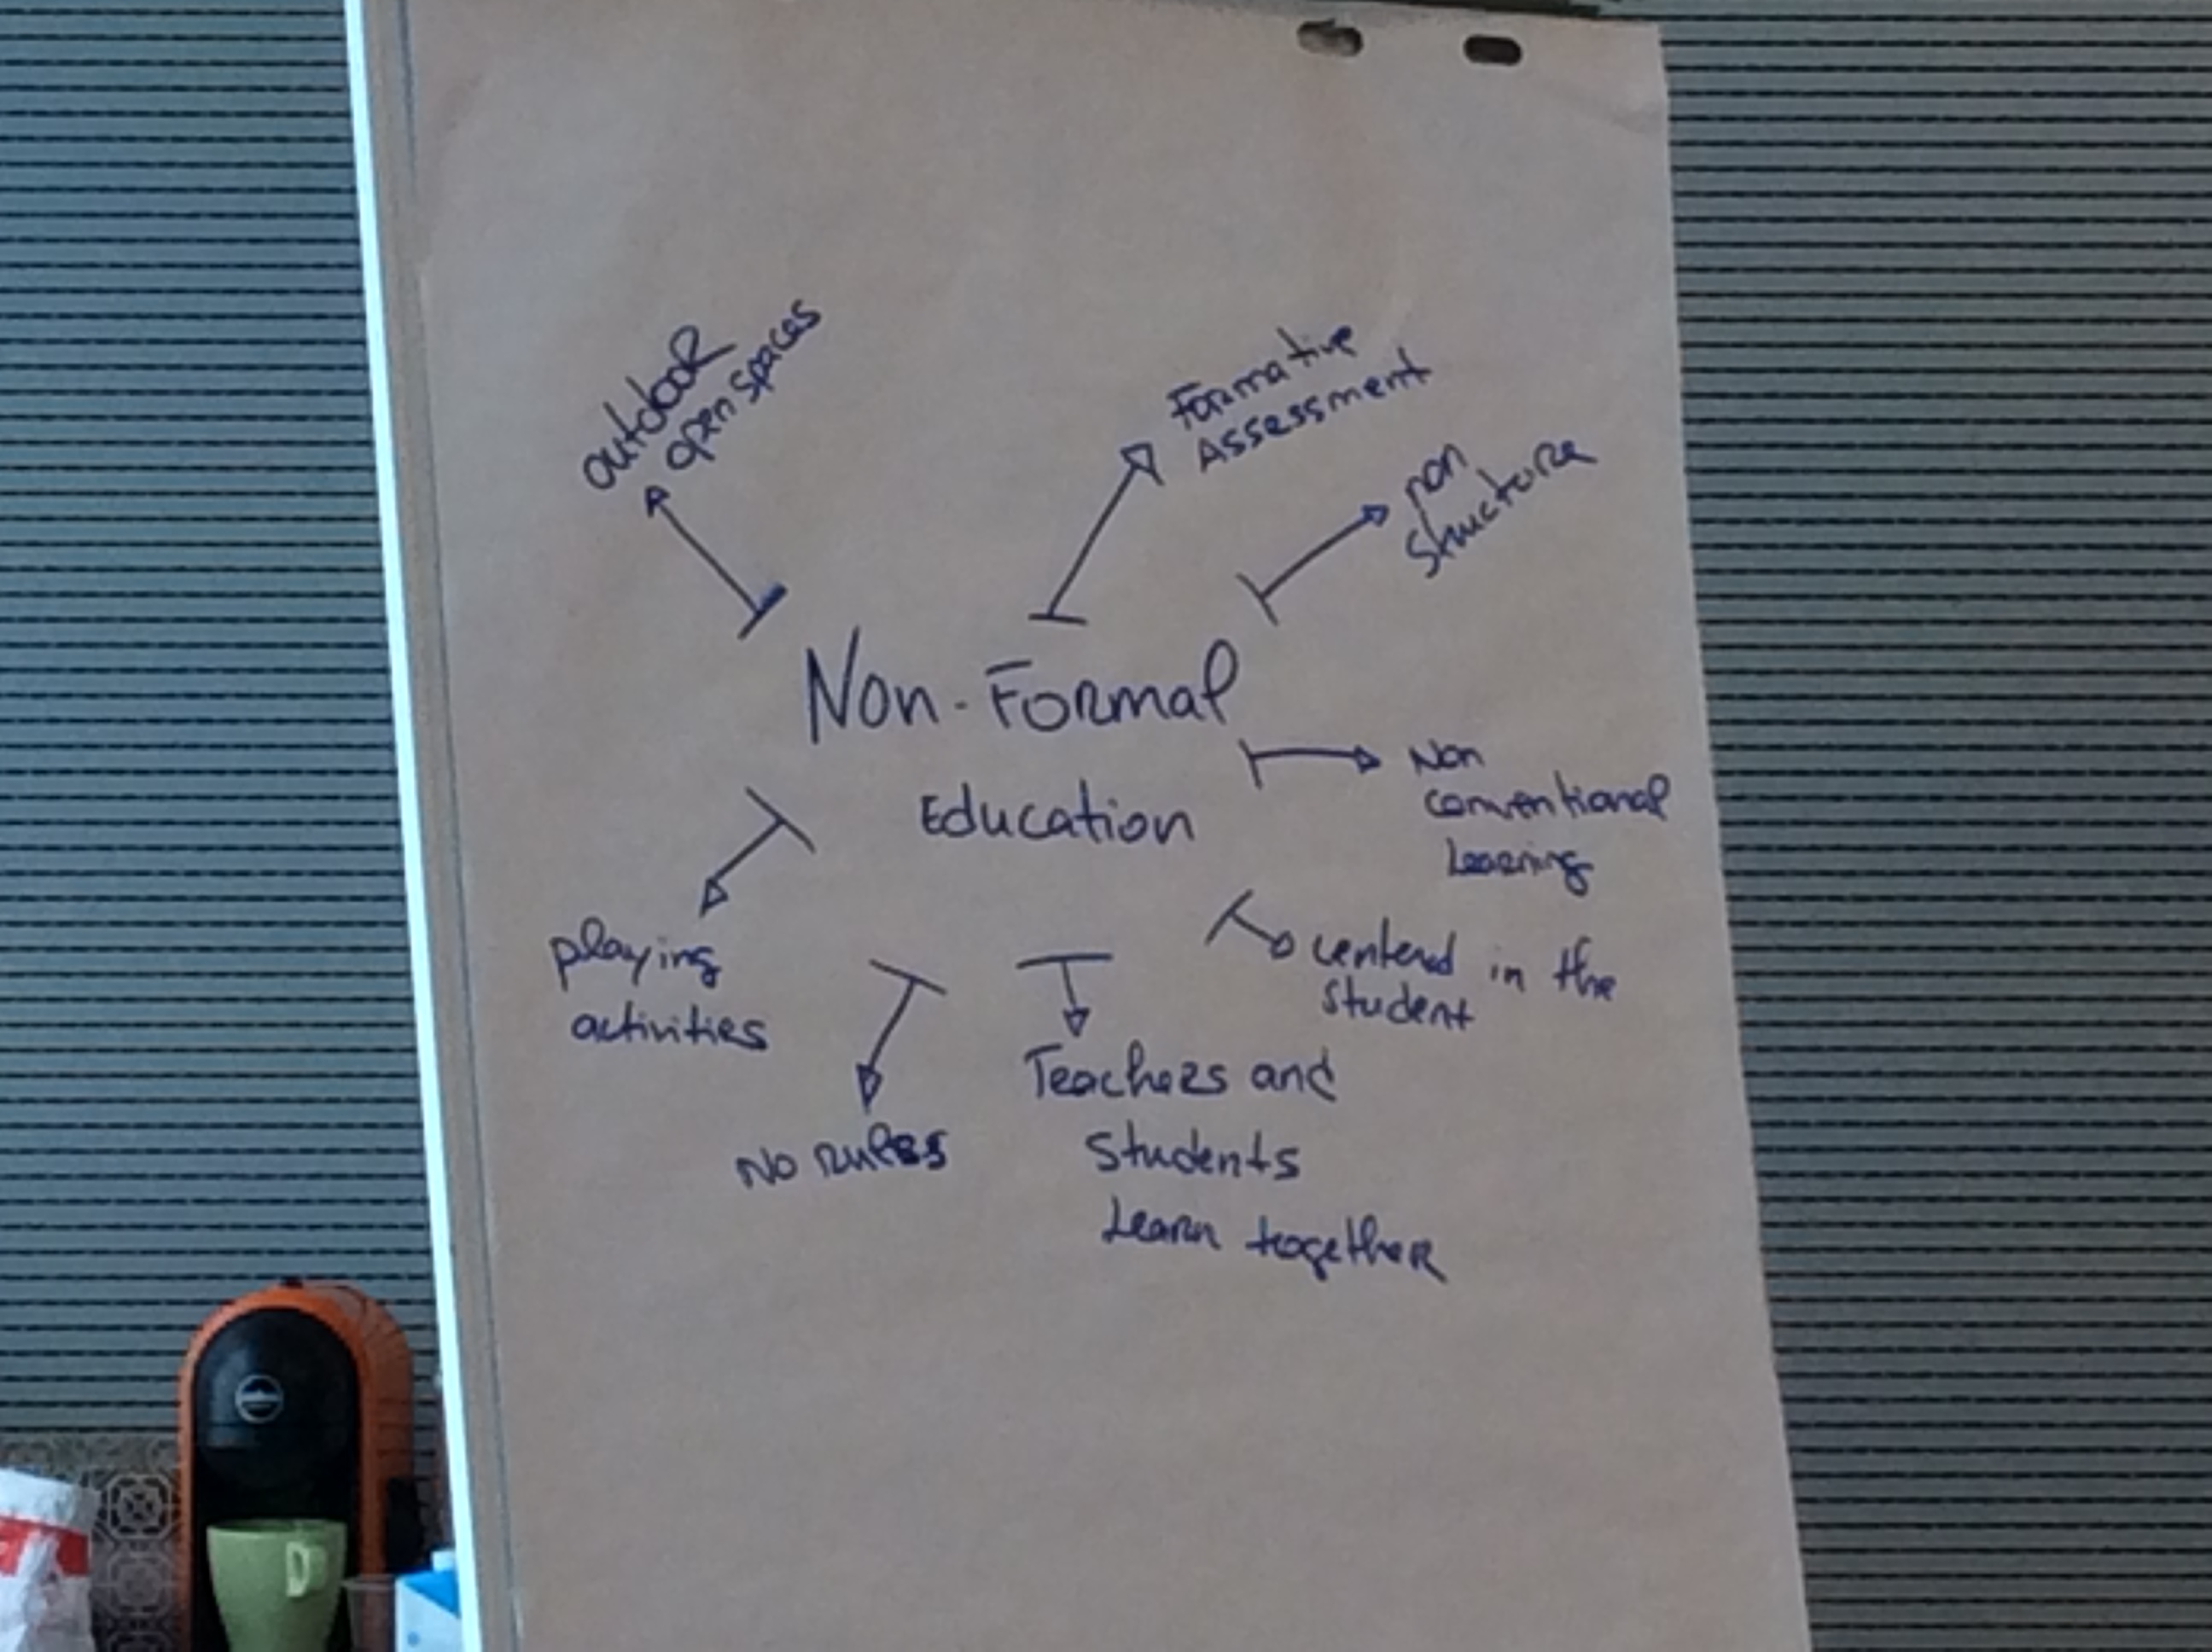 outdoor
open spaces
Formative
Assessment
non
structure
Non-Formal
Education
Non
conventional
Learning
playing
activities
centered in the
student
No rules
Teachers and
students
Learn together